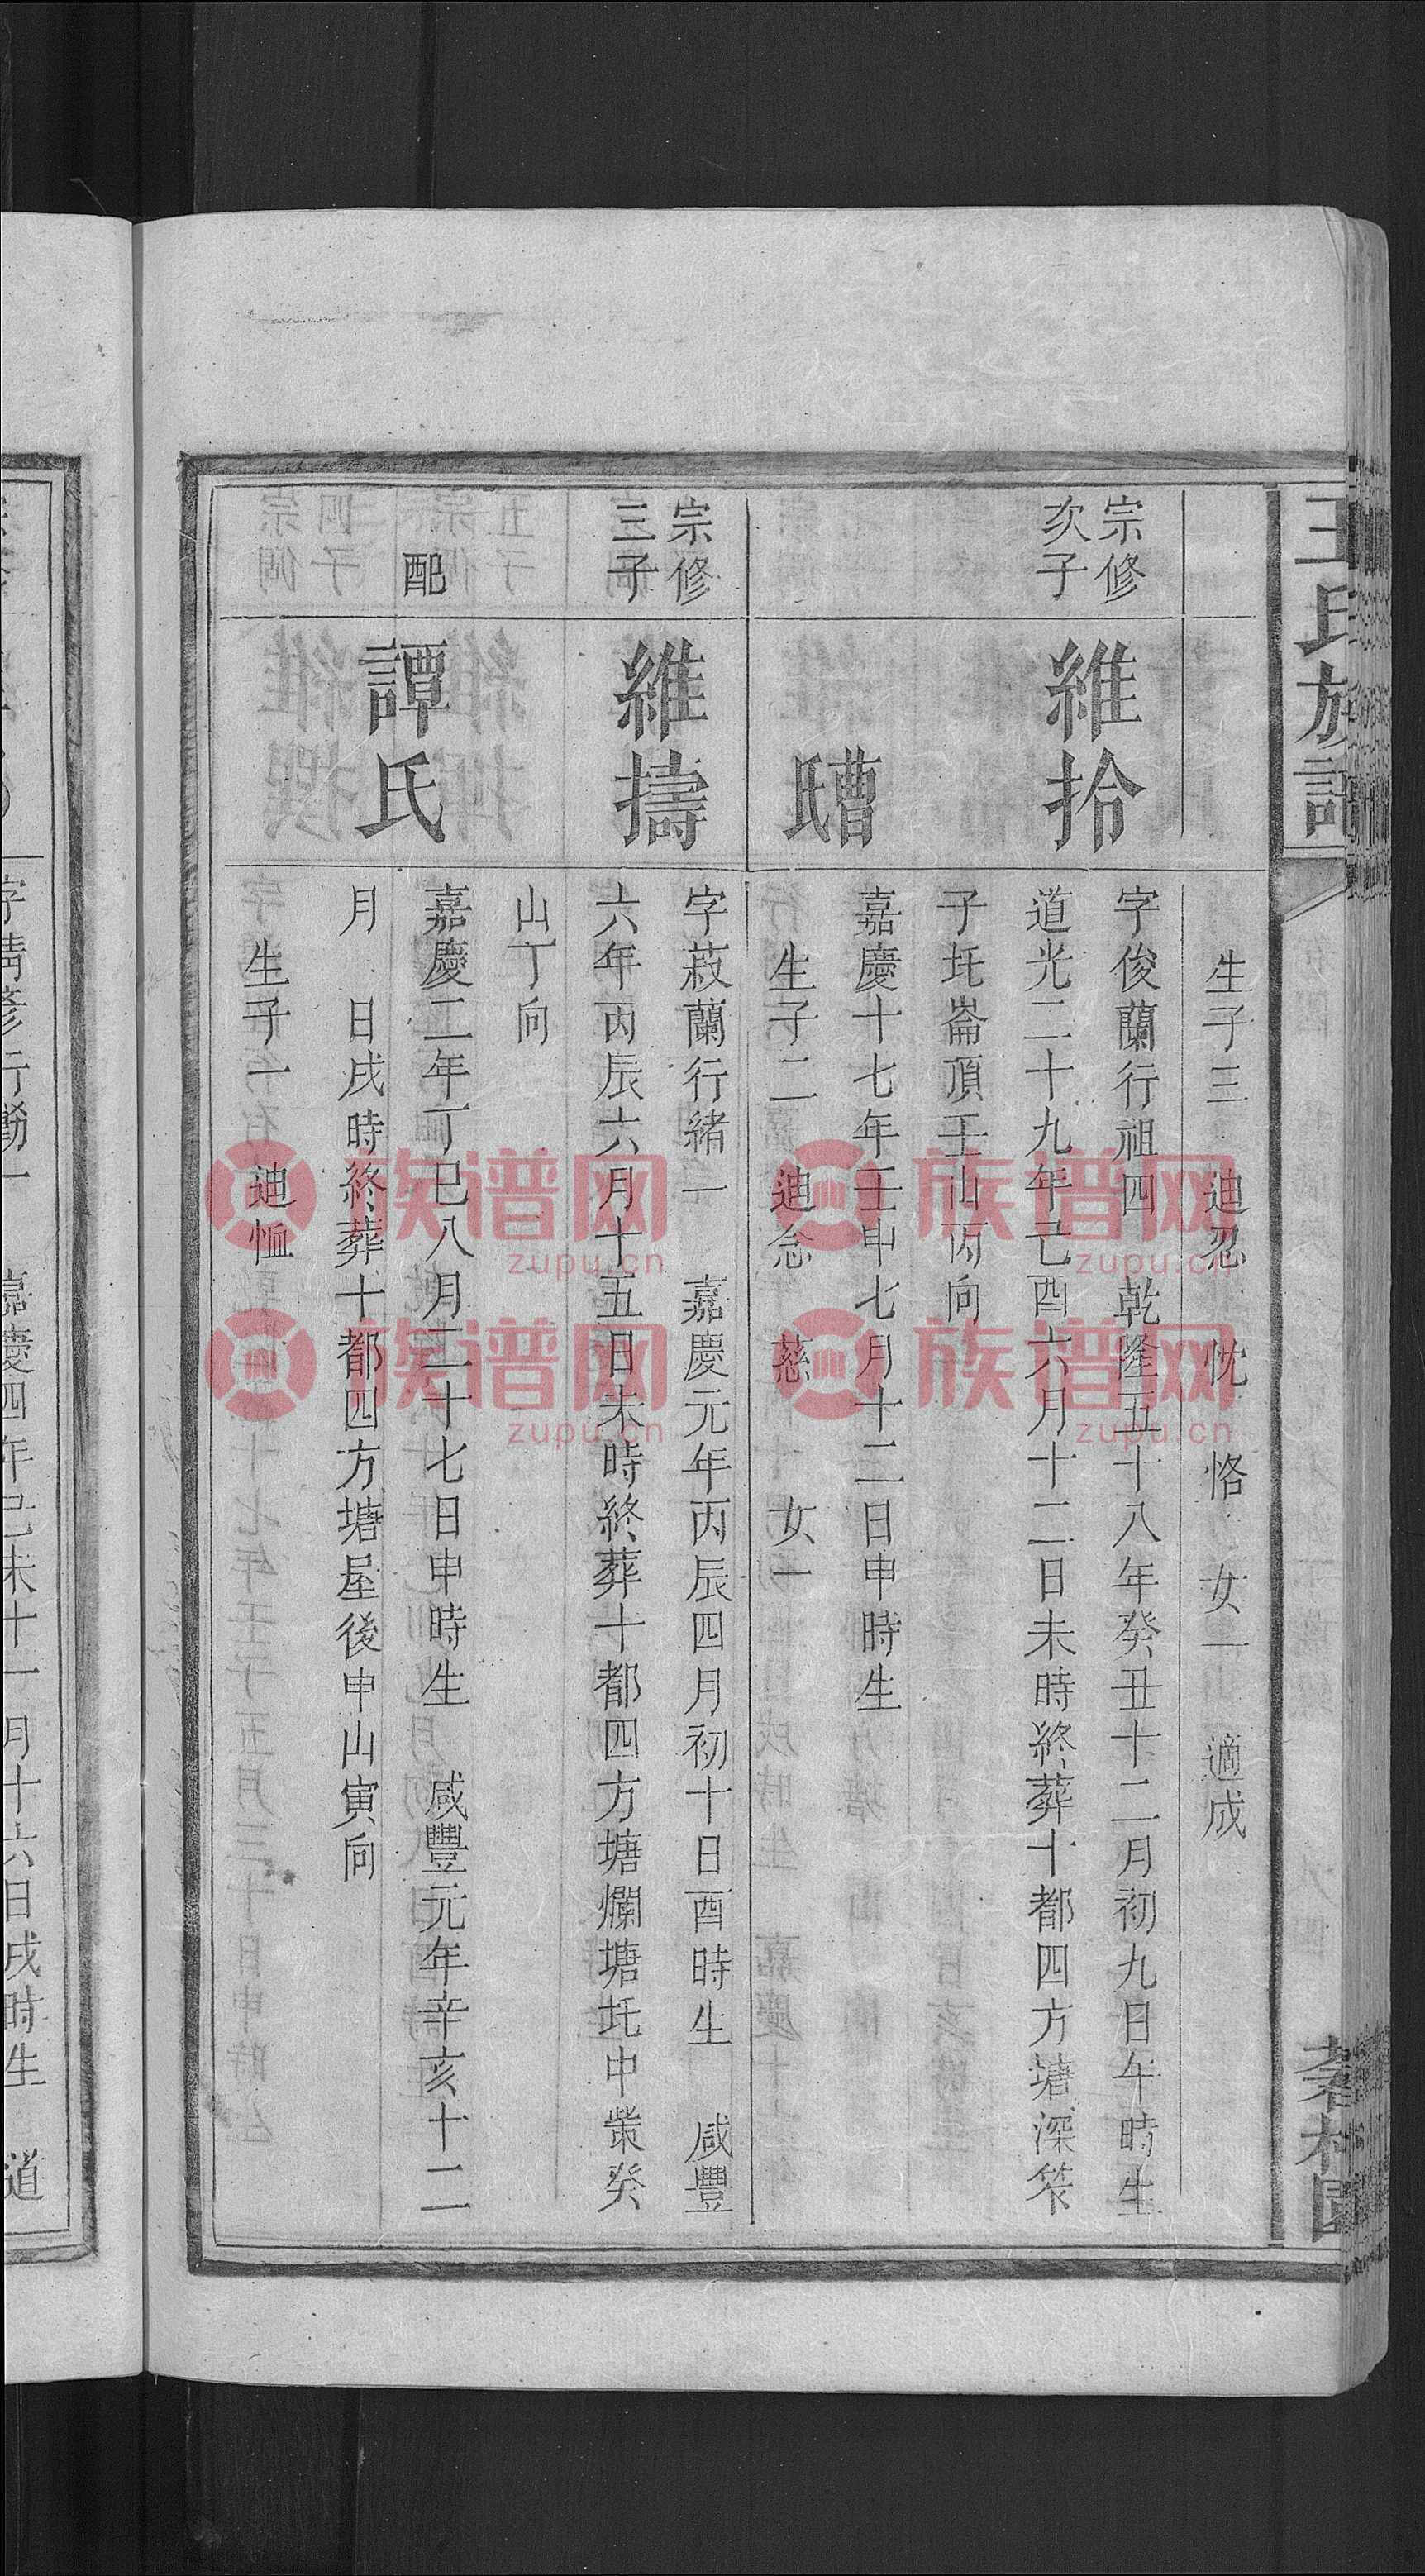 王氏族
生子三 迪忍 忱 恪 女一 適成
宗修
次子
維拾
字俊蘭行祖四 乾隆五十八年癸丑十二月初九日午時生
道光二十九年己酉六月十二日未時終葬十都四方塘深
子圫崙頂壬山丙向
嘉慶十七年壬申七月十二日申時生
生子二 迪念 慈 女一
宗修
三子
維擣
字菽蘭行緒一 嘉慶元年丙辰四月初十日酉時生 咸豐
六年丙辰六月十五日未時終葬十都四方塘爛塘圫中棠癸
山丁向
配
譚氏
嘉慶二年丁巳八月二十七日申時生 咸豐元年辛亥十二
月 日戌時終葬十都四方塘屋後申山寅向
生子一 迪恤
嘉慶四年己未十一月十六日戌時生 道
族谱网
zupu.cn
族谱网
zupu.cn
族谱网
zupu.cn
族谱网
zupu.cn